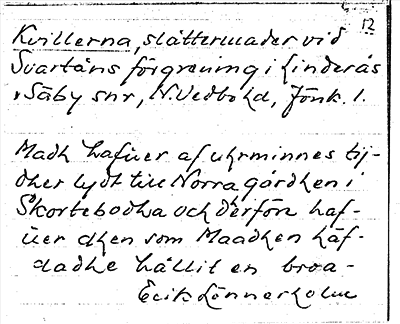 12
Kvillerna, slåttermader vid
Svartåns förgrening i Linderås
o Säby snr, N. Vedbo hd, Jönk. l.
Madh hafuer af uhrminnes tij-
dher lydt till Norra gårdhen i
Skortebodha och dherföre haf-
uer dhen som Maadhen häf-
dadhe hållit en broa-
Erik Lönnerholm